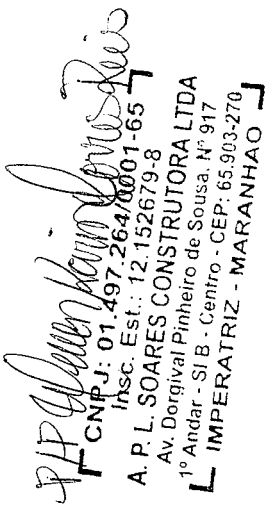 P/P
CNPJ: 01.497.264/0001-65
Insc. Est.: 12.152679-8
A. P. L. SOARES CONSTRUTORA LTDA
Av. Dorgival Pinheiro de Sousa, Nº 917
1º Andar - Sl B - Centro - CEP: 65.903-270
IMPERATRIZ - MARANHAO